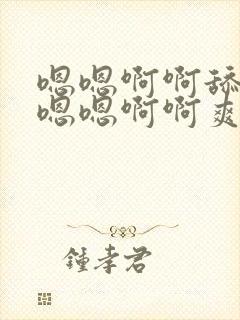 嗯嗯啊啊舔
嗯嗯啊啊爽
鍾孝君